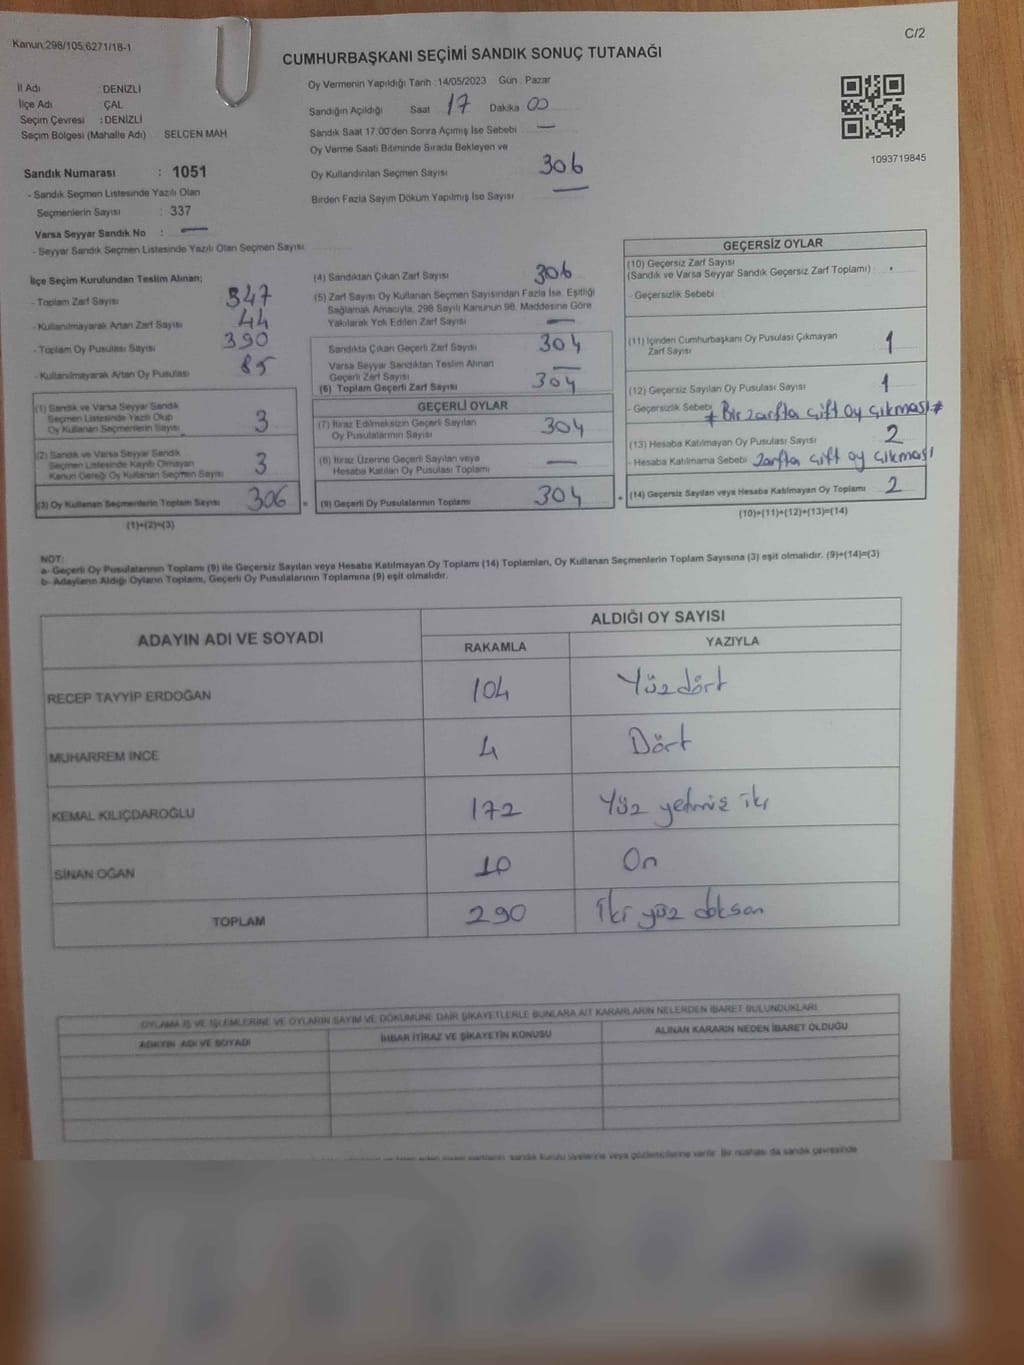 Kanun:298/105;6271/18-1
C/2
CUMHURBAŞKANI SEÇİMİ SANDIK SONUÇ TUTANAĞI
İl Adı : DENİZLİ
İlçe Adı : ÇAL
Seçim Çevresi : DENİZLİ
Seçim Bölgesi (Mahalle Adı) SELCEN MAH
Sandık Numarası : 1051
- Sandık Seçmen Listesinde Yazılı Olan
Seçmenlerin Sayısı : 337
Varsa Seyyar Sandık No : —
- Seyyar Sandık Seçmen Listesinde Yazılı Olan Seçmen Sayısı
Oy Vermenin Yapıldığı Tarih : 14/05/2023 Gün : Pazar
Sandığın Açıldığı Saat 17 Dakika 00
Sandık Saat 17.00'den Sonra Açımış İse Sebebi —
Oy Verme Saati Bitiminde Sırada Bekleyen ve
Oy Kullandırılan Seçmen Sayısı 306
Birden Fazla Sayım Döküm Yapılmış İse Sayısı —
1093719845
İlçe Seçim Kurulundan Teslim Alınan;
- Toplam Zarf Sayısı 347
- Kullanılmayarak Artan Zarf Sayısı 44
- Toplam Oy Pusulası Sayısı 390
- Kullanılmayarak Artan Oy Pusulası 85
(1) Sandık ve Varsa Seyyar Sandık
Seçmen Listesinde Yazılı Olup
Oy Kullanan Seçmenlerin Sayısı 3
(2) Sandık ve Varsa Seyyar Sandık
Seçmen Listesinde Kayıtlı Olmayan
Kanun Gereği Oy Kullanan Seçmen Sayısı 3
(3) Oy Kullanan Seçmenlerin Toplam Sayısı 306
(1)+(2)=(3)
(4) Sandıktan Çıkan Zarf Sayısı 306
(5) Zarf Sayısı Oy Kullanan Seçmen Sayısından Fazla İse, Eşitliği
Sağlamak Amacıyla, 298 Sayılı Kanunun 98. Maddesine Göre
Yakılarak Yok Edilen Zarf Sayısı —
Sandıkta Çıkan Geçerli Zarf Sayısı 304
Varsa Seyyar Sandıktan Teslim Alınan
Geçerli Zarf Sayısı —
(6) Toplam Geçerli Zarf Sayısı 304
GEÇERLİ OYLAR
(7) İtiraz Edilmeksizin Geçerli Sayılan
Oy Pusulalarının Sayısı 304
(8) İtiraz Üzerine Geçerli Sayılan veya
Hesaba Katılan Oy Pusulası Toplamı —
= (9) Geçerli Oy Pusulalarının Toplamı 304
GEÇERSİZ OYLAR
(10) Geçersiz Zarf Sayısı
(Sandık ve Varsa Seyyar Sandık Geçersiz Zarf Toplamı)
- Geçersizlik Sebebi
(11) İçinden Cumhurbaşkanı Oy Pusulası Çıkmayan
Zarf Sayısı 1
(12) Geçersiz Sayılan Oy Pusulası Sayısı 1
- Geçersizlik Sebebi # Bir zarfta çift oy çıkması #
(13) Hesaba Katılmayan Oy Pusulası Sayısı 2
- Hesaba Katılmama Sebebi zarfta çift oy çıkması
+ (14) Geçersiz Sayılan veya Hesaba Katılmayan Oy Toplamı 2
(10)+(11)+(12)+(13)=(14)
NOT:
a- Geçerli Oy Pusulaları Toplamı (9) ile Geçersiz Sayılan veya Hesaba Katılmayan Oy Toplamı (14) Toplamları, Oy Kullanan Seçmenlerin Toplam Sayısına (3) eşit olmalıdır. (9)+(14)=(3)
b- Adayların Aldığı Oyların Toplamı, Geçerli Oy Pusulalarının Toplamına (9) eşit olmalıdır.
ADAYIN ADI VE SOYADI
ALDIĞI OY SAYISI
RAKAMLA YAZIYLA
RECEP TAYYİP ERDOĞAN 104 Yüzdört
MUHARREM İNCE 4 Dört
KEMAL KILIÇDAROĞLU 172 Yüz yetmiş iki
SİNAN OĞAN 10 On
TOPLAM 290 iki yüz doksan
OYLAMA İŞ VE İŞLEMLERİNE VE OYLARIN SAYIM VE DÖKÜMÜNE DAİR ŞİKAYETLERLE BUNLARA AİT KARARLARIN NELERDEN İBARET BULUNDUKLARI
ADAYIN ADI VE SOYADI İHBAR İTİRAZ VE ŞİKAYETİN KONUSU ALINAN KARARIN NEDEN İBARET OLDUĞU
sandık kurulu üyelerine veya gözlemcilerine verilir. Bir nüshası da sandık çevresinde